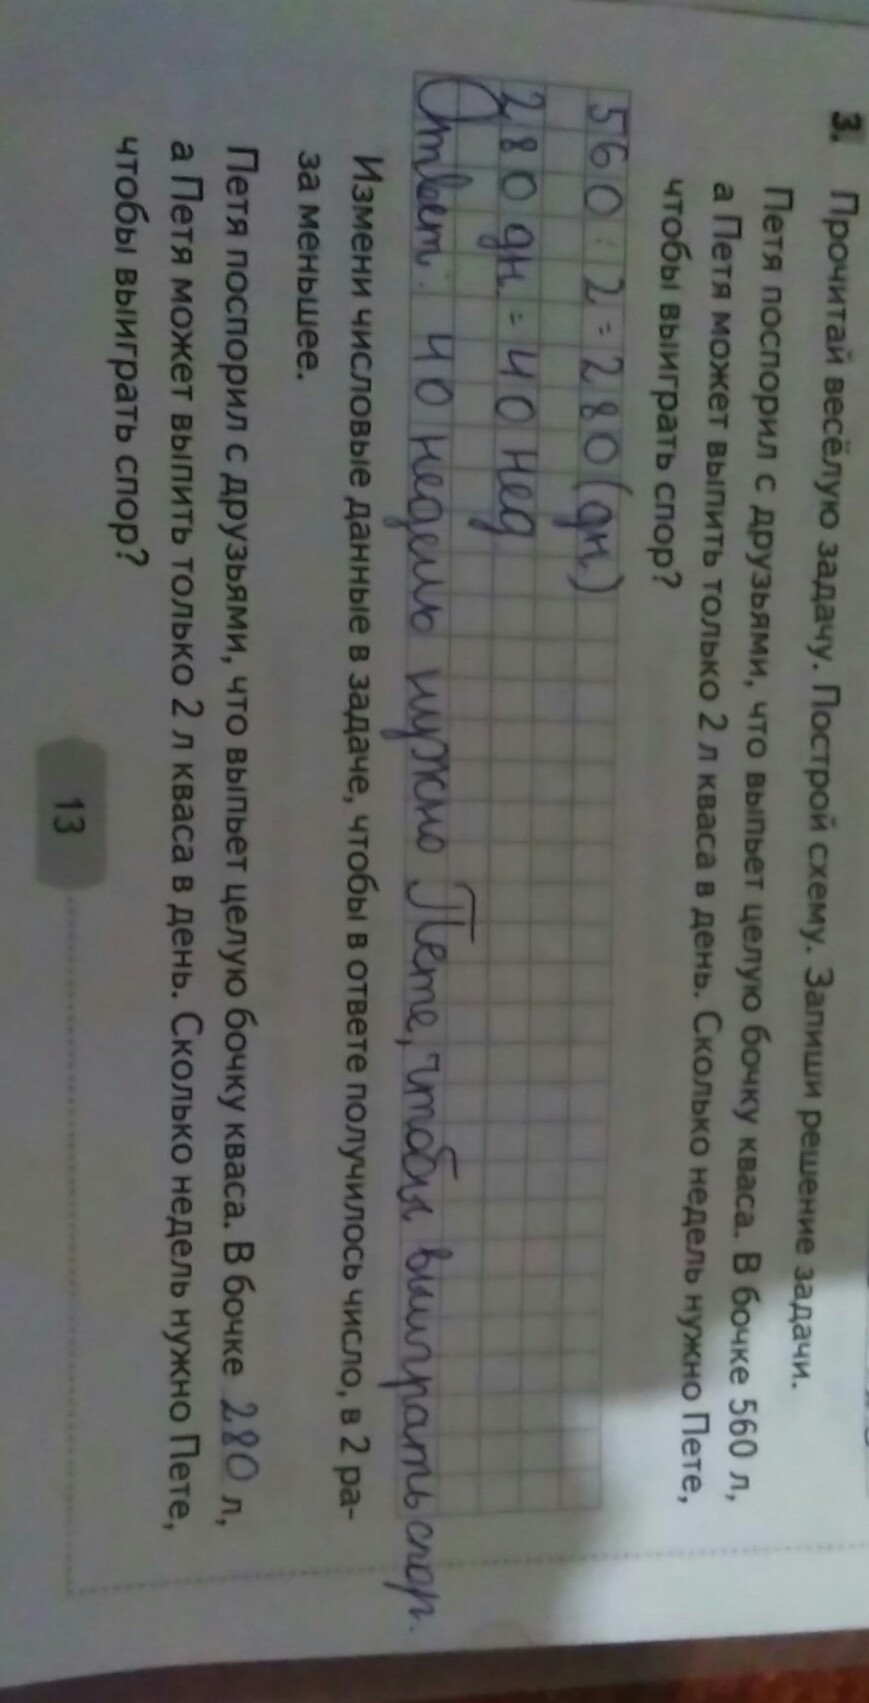 3. Прочитай весёлую задачу. Построй схему. Запиши решение задачи.
Петя поспорил с друзьями, что выпьет целую бочку кваса. В бочке 560 л,
а Петя может выпить только 2 л кваса в день. Сколько недель нужно Пете,
чтобы выиграть спор?
560 : 2 = 280 (дн)
280 дн = 40 нед
Ответ: 40 недель нужно Пете, чтобы выиграть спор.
Измени числовые данные в задаче, чтобы в ответе получилось число, в 2 ра-
за меньшее.
Петя поспорил с друзьями, что выпьет целую бочку кваса. В бочке 280 л,
а Петя может выпить только 2 л кваса в день. Сколько недель нужно Пете,
чтобы выиграть спор?
13